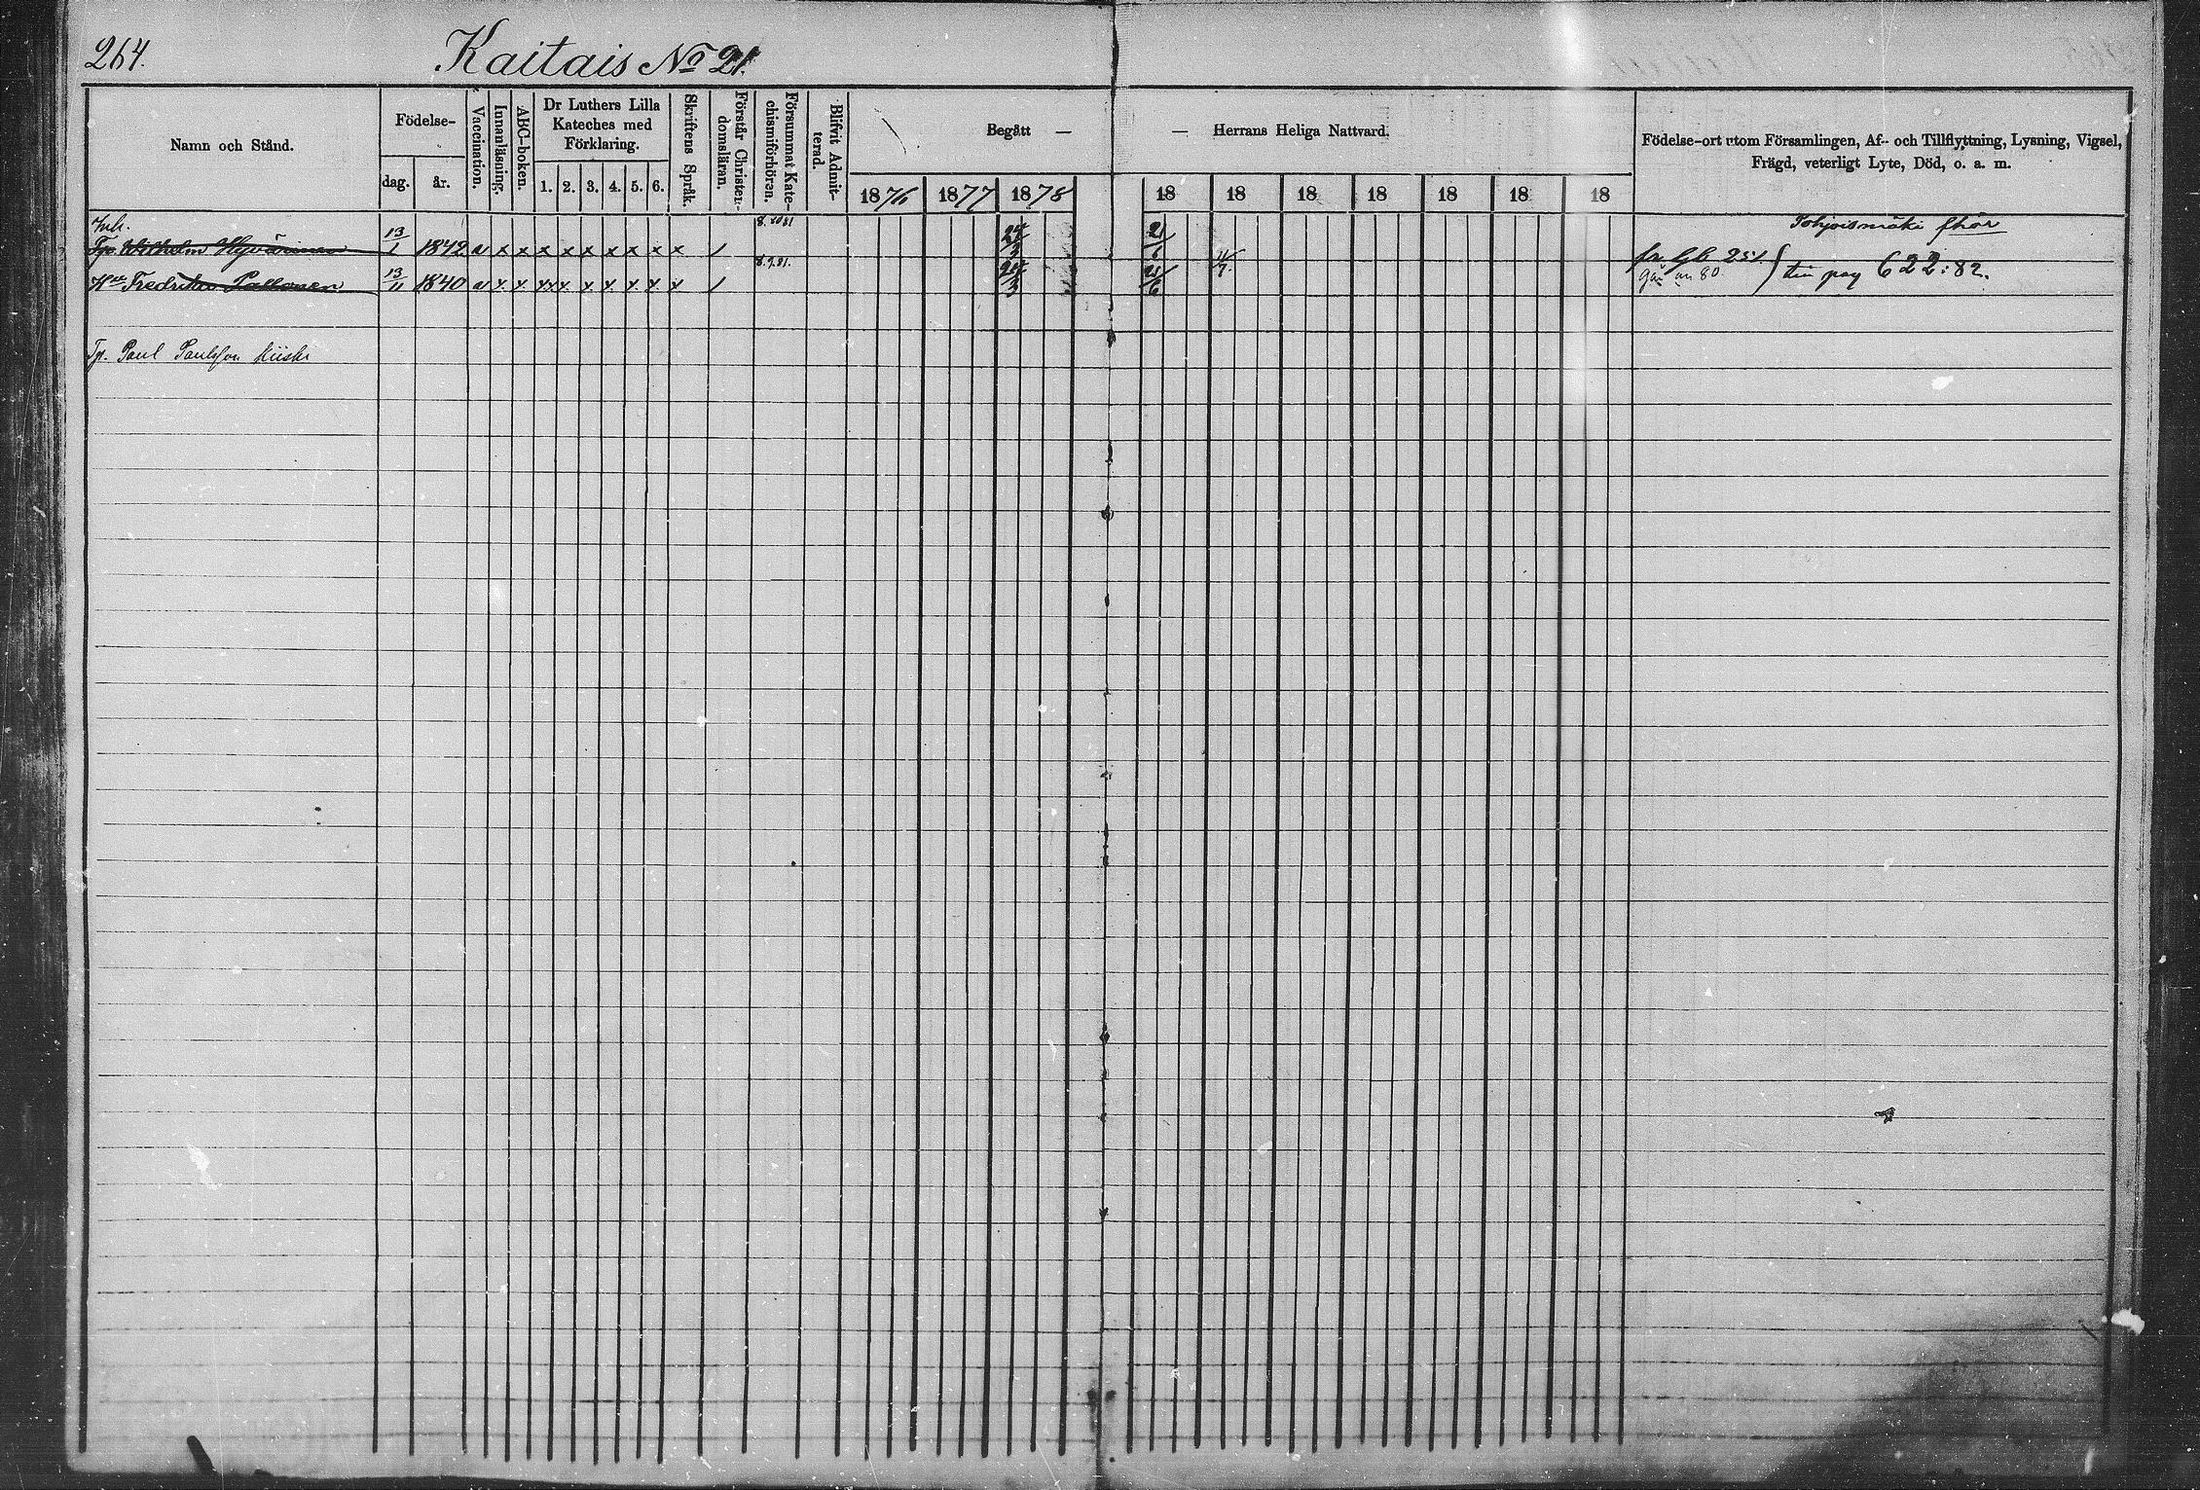 264. Kaitais No 21.
Namn och Stånd.
Födelse-
dag. år.
Vaccination.
Innanläsning.
ABC-boken.
Dr Luthers Lilla
Kateches med
Förklaring.
1. 2. 3. 4. 5. 6.
Skriftens Språk.
Förstår Christen-
domsläran.
Försummat Kate-
chismiförhören.
Blifvit Admit-
terad.
Begått — — Herrans Heliga Nattvard.
1876 1877 1878 18 18 18 18 18 18 18
Födelse-ort utom Församlingen, Af- och Tillflyttning, Lysning, Vigsel,
Frägd, veterligt Lyte, Död, o. a. m.
Inh. 8. 80 81 Tohjoismäki
Tp. Wilhelm Hyvärinen 13/1 1842 v x x x x x x x x x / 24/3 21/6 fr. 251
8.9.81.
Hu Fredrika Pallonen 13/11 1840 v x x xx x x x x x x / 24/3 21/6 4/7 80. pag 622:82.
Tp. Paul Paulsson Kiiski